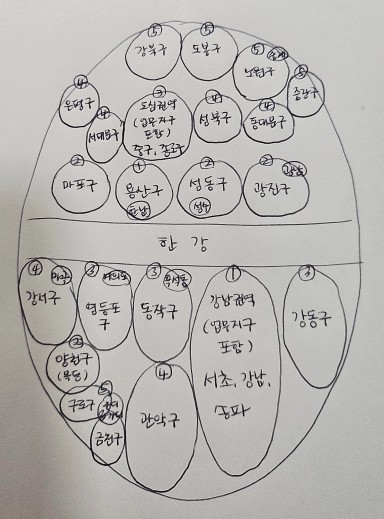 ⑤ ⑤
강북구 도봉구
⑤
노원구
⑤
중랑구
④
은평구
④
서대문구
③
도심권역
(업무지구
포함)
중구, 종로구
④
성북구
④
동대문구
②
마포구
①
용산구
한남
②
성동구
성수
②
광진구
한강
④
강서구
마곡
③
여의도
영등포
구
③
동작구
①
강남권역
(업무지구
포함)
서초, 강남,
송파
③
강동구
②
양천구
(목동)
구로구
⑤
금천구
④
관악구